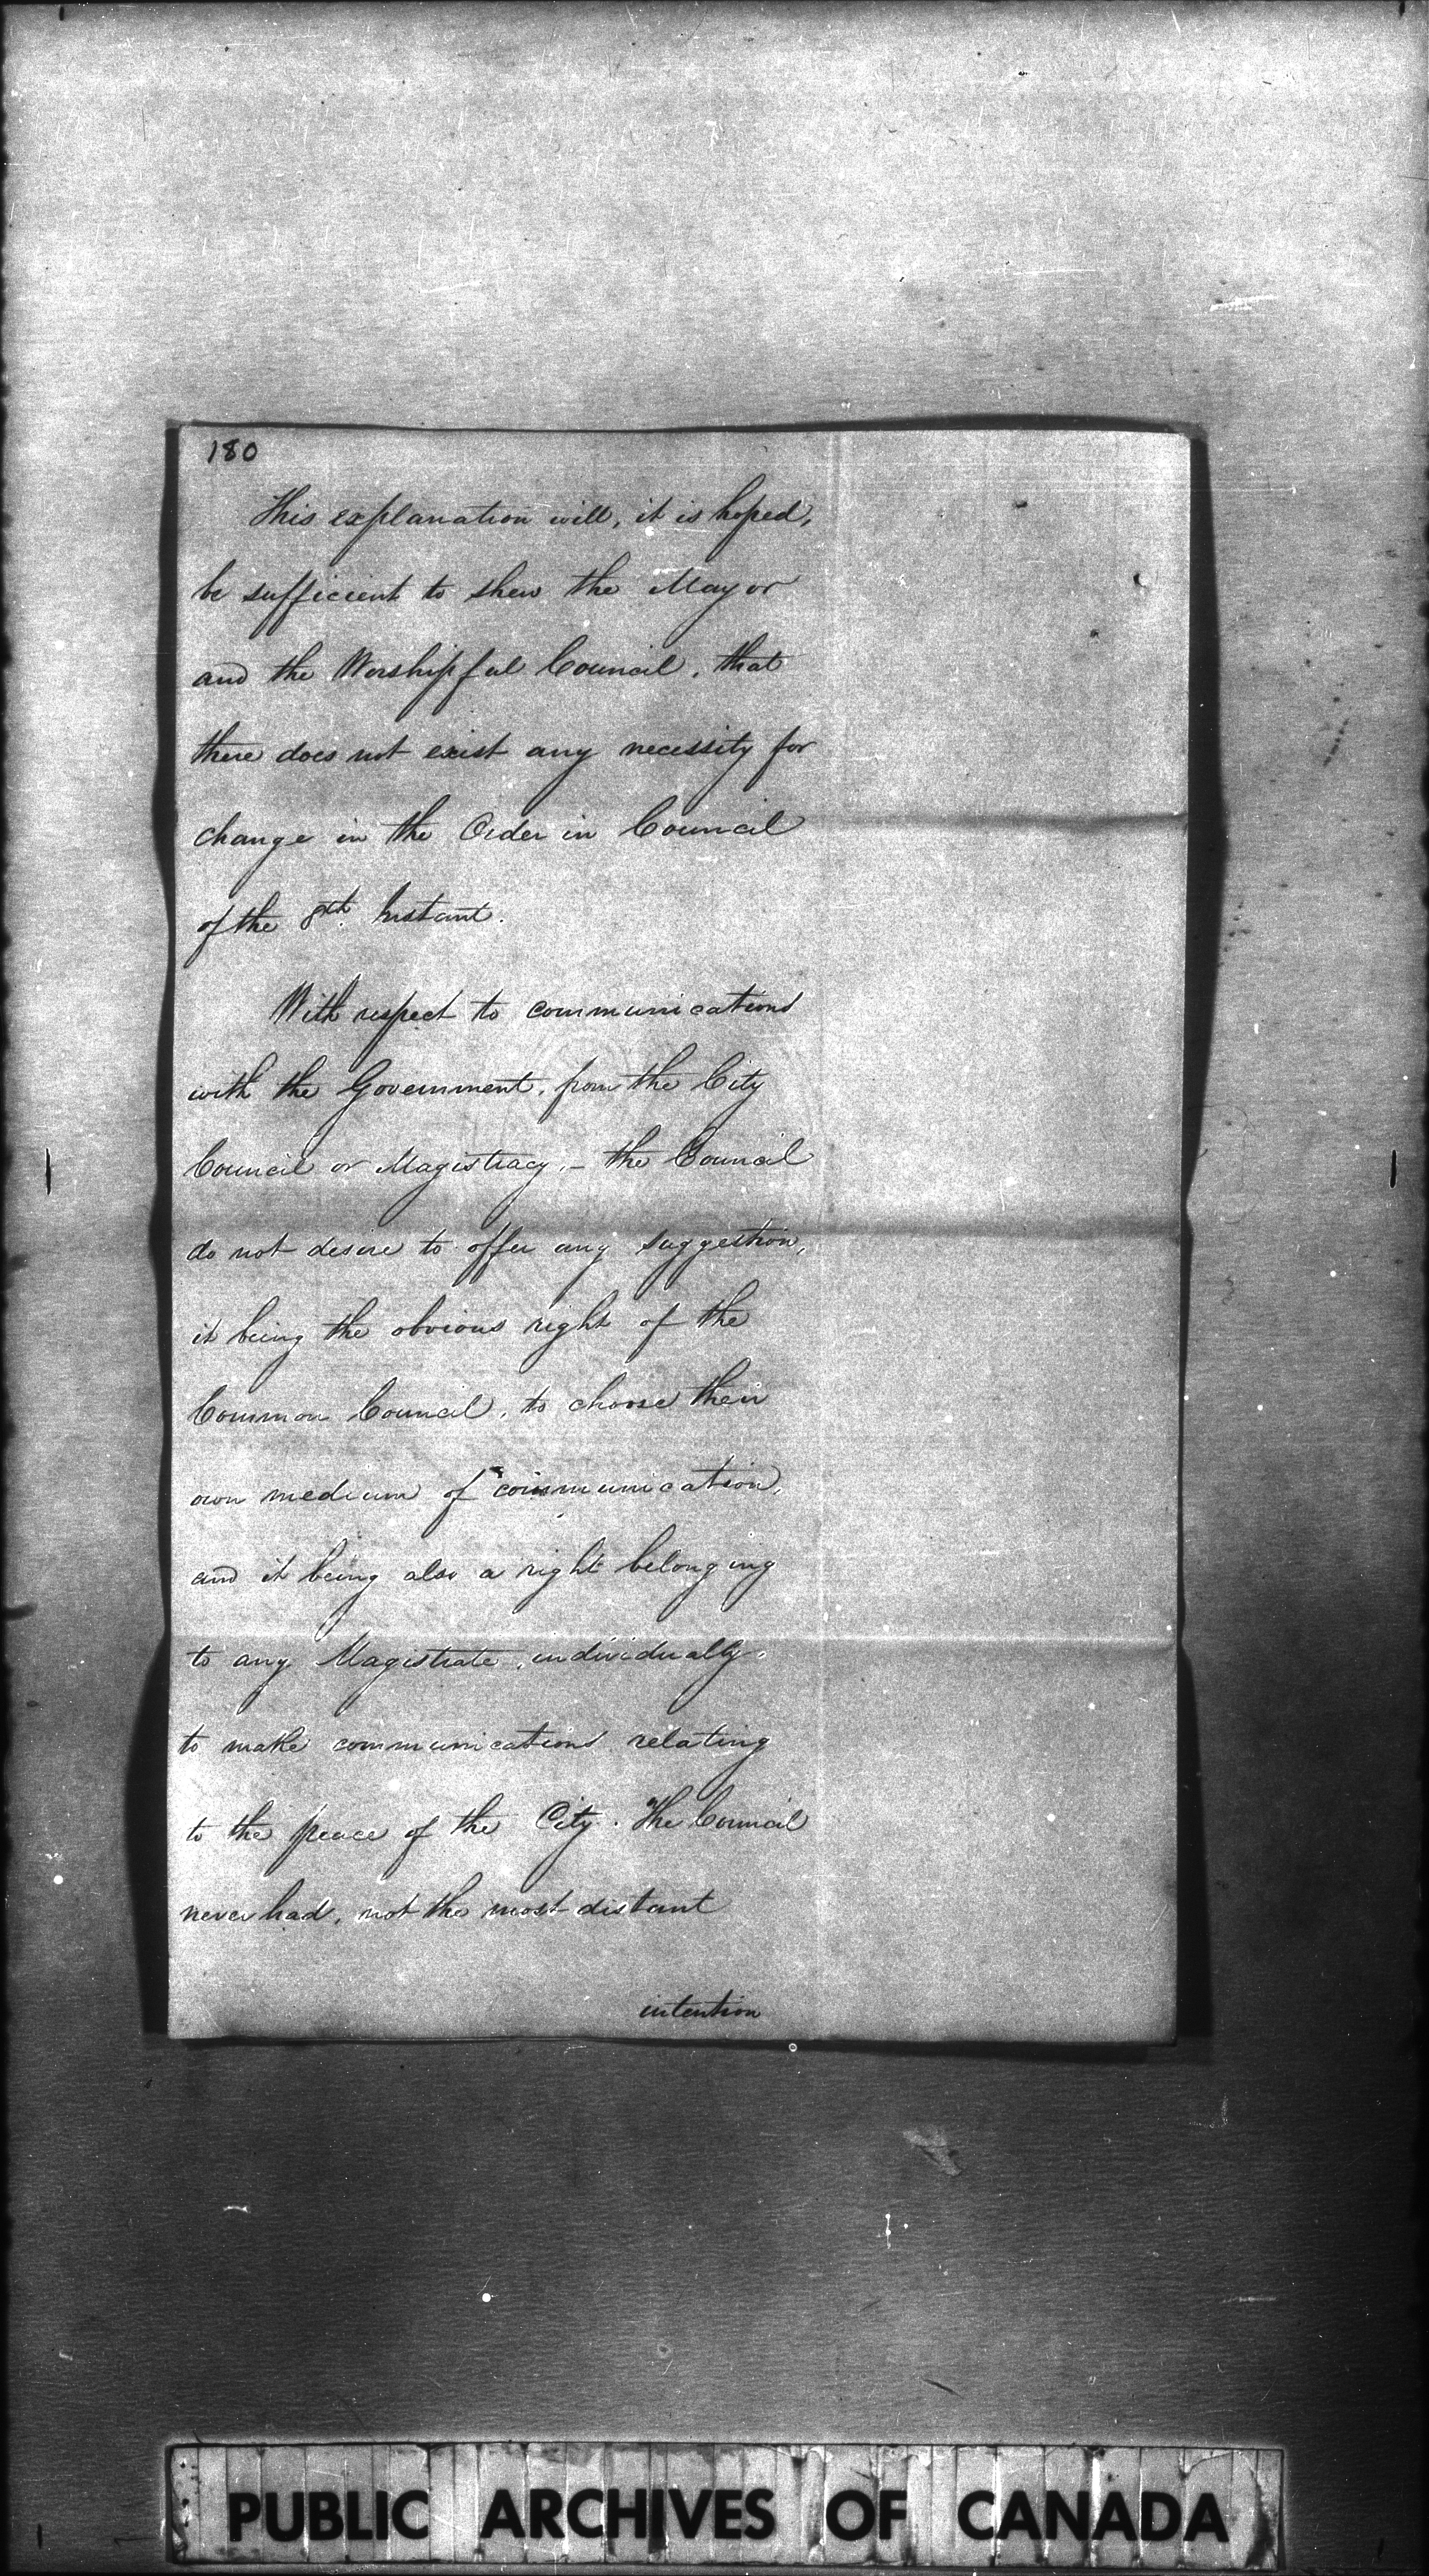 180
This explanation will, it is hoped,
be sufficient to shew the Mayor
and the Worshipful Council, that
there does not exist any necessity for
change in the Order in Council
of the 8th Instant.
With respect to communications
with the Government, from the City
Council or Magistracy, - the Council
do not desire to offer any suggestion,
it being the obvious right of the
Common Council, to choose their
own medium of communication,
and it being also a right belonging
to any Magistrate, individually,
to make communications relating
to the peace of the City. The Council
never had, not the most distant
intention
PUBLIC ARCHIVES OF CANADA